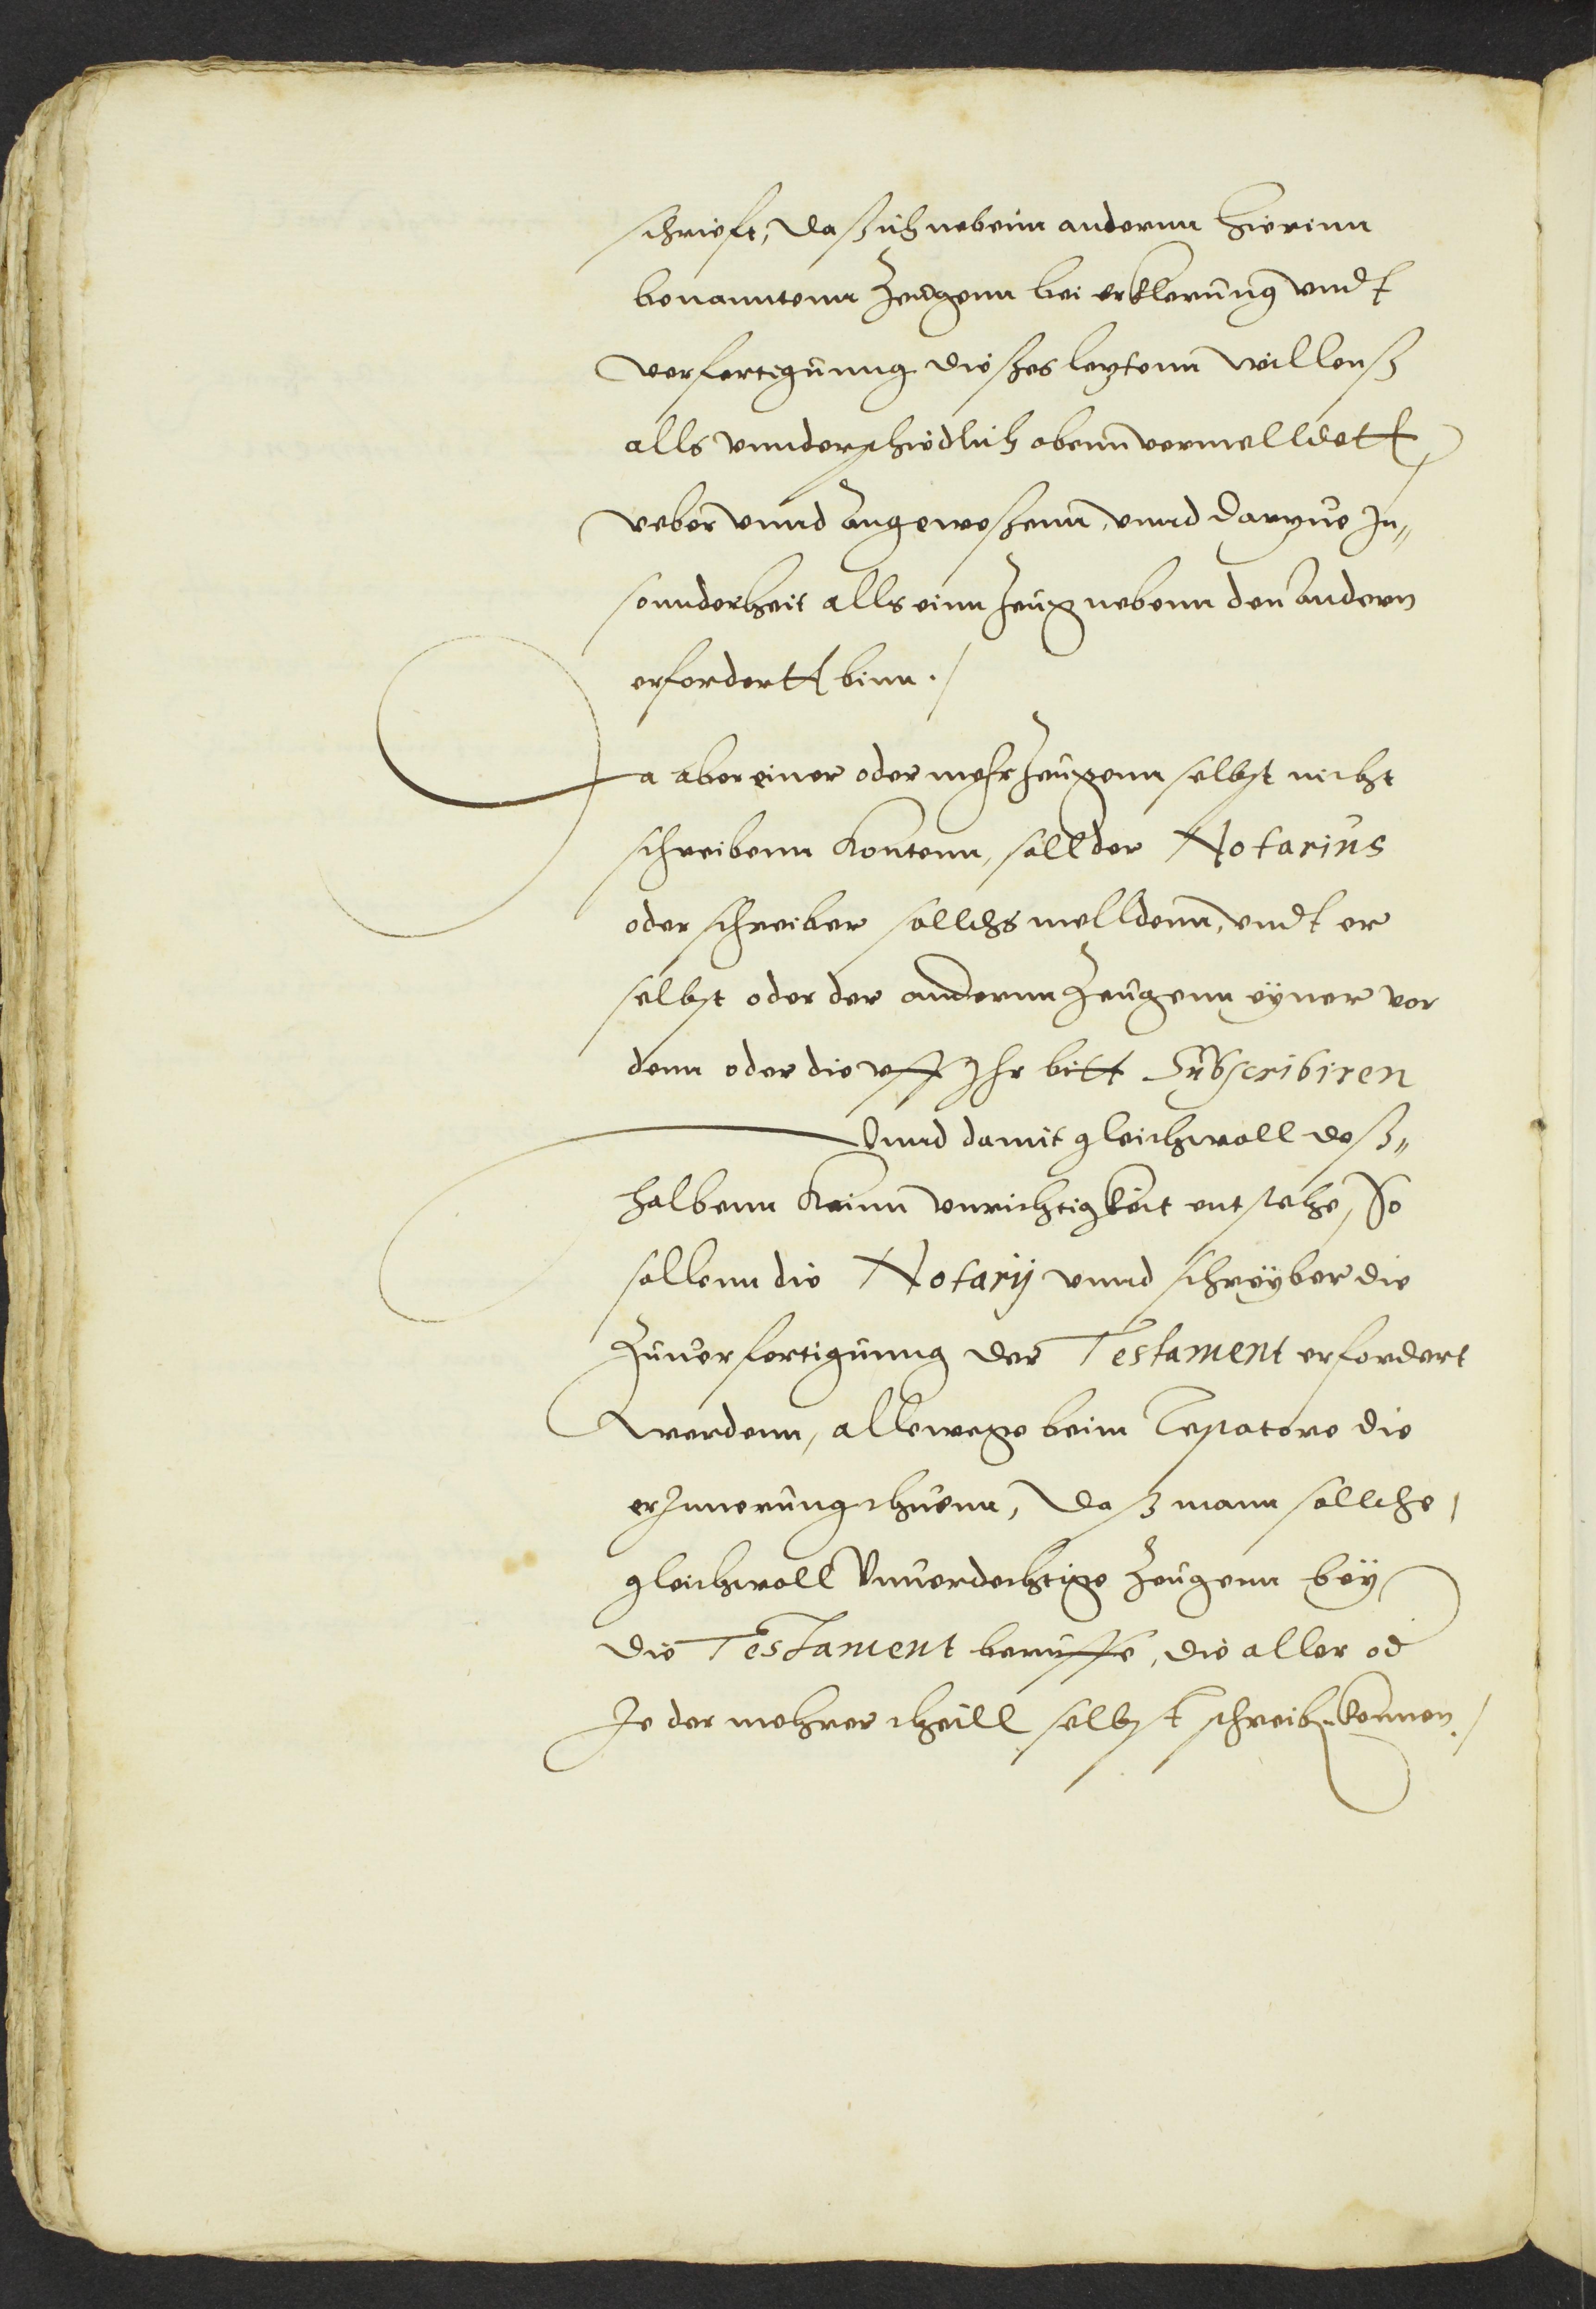 schrieft, daß ich nebenn andernn hierinn
benanntenn Zeugenn bei erklerung vndt
verfertigunng dießes letztenn willenß
alls vnnderschiedlich obenn vermelldett
veber vnnd angeweßenn, vnnd darzue In„
sonnderheit alls einn Zeug nebenn den Andern
erfordertt binn ./
Da aber einer oder mehr Zeugenn selbst nicht
schreibenn konntenn, soll der Notarius
oder schreiber sollchs melldenn, vndt er
selbst oder der andernn Zeugenn eyner vor
denn oder die vff Ihr bitt Subscribiren
Vnnd damit gleichwoll deß„
halbenn keinn vnrichtigkeit entstehe, So
sollenn die Notarij vnnd schreyber die
Zuuerfertigunng der Testament erfordert
werdenn, allewege beim Testatore die
erInnerung thuenn, daß mann sollche
gleichwoll Vnuerdechtige Zeugenn bey
die Testament beruffe, die aller od
Je der mehrer theill selbst schreiben konnen ./